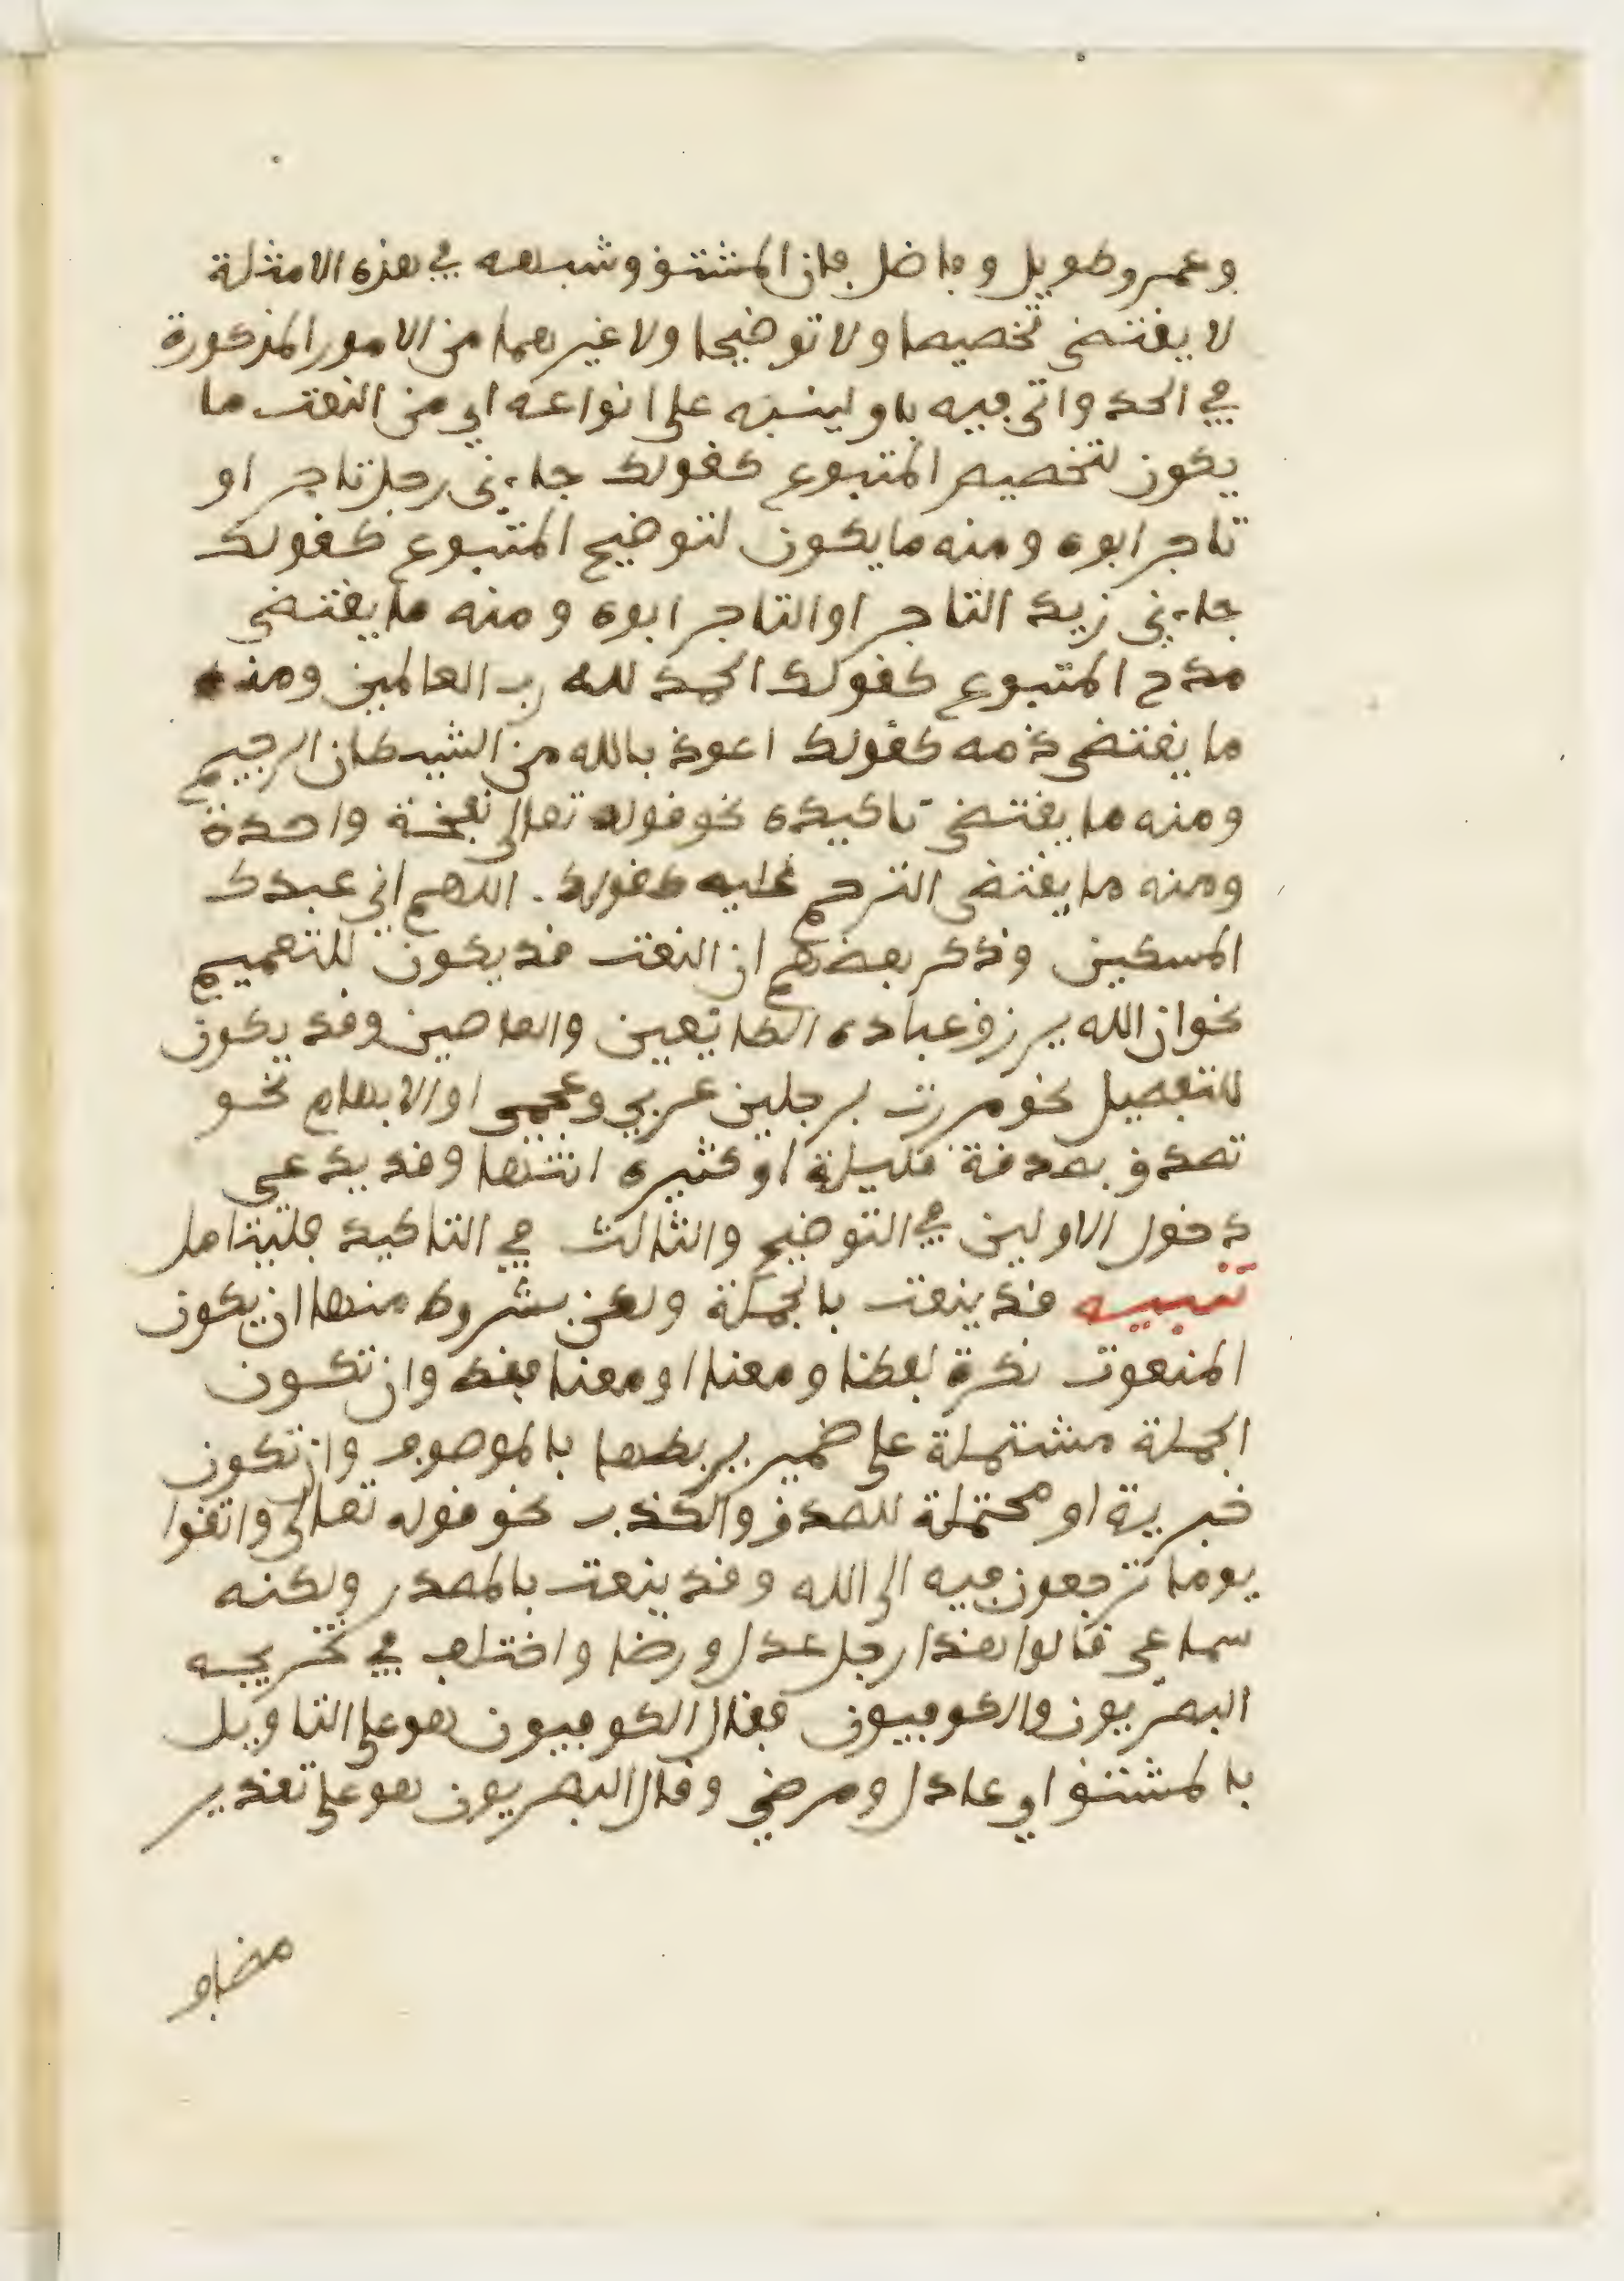 وعمر وطويل وفاضل فإن المشتق وشبهه في هذه الامثلة
لا يقتضى تخصيصا ولا توضيحا ولا غيرهما من الامور المذكورة
في الحد واتى فيه باو لينبه على انواعه اي من النعت ما
يكون لتخصيص المتبوع كقولك جاءني رجل تاجر او
تاجر ابوه ومنه ما يكون لتوضيح المتبوع كقولك
جاءني زيد التاجر او التاجر ابوه ومنه ما يقتضى
مدح المتبوع كقولك الحمد لله رب العالمين ومنه
ما يقتضى ذمه كقولك اعوذ بالله من الشيطان الرجيم
ومنه ما يقتضى تاكيده نحو قوله تعالى نفخة واحدة
ومنه ما يقتضى الترحم عليه كقولك اللهم اني عبدك
المسكين وذكر بعضهم ان النعت قد يكون للتعميم
نحو ان الله يرزق عباده الطائعين والعاصين وقد يكون
للتفصيل نحو مررت برجلين عربي وعجمى او الابهام نحو
تصدق بصدقة قليلة او كثيره انتها وقد يدعى
دخول الاولين في التوضيح والثالث في التاكيد فليتامل
تنبيه قد ينعت بالجملة ولكن بشروط منها ان يكون
المنعوت نكرة لفظا ومعنا او معنا فقط وان تكون
الجملة مشتملة على ضمير يربطها بالموصوف وان تكون
خبرية او محتملة للصدق والكذب نحو قوله تعالى واتقوا
يوما ترجعون فيه الى الله وقد ينعت بالمصدر ولكنه
سماعى قالوا هذا رجل عدل ورضا واختلف في تخريجه
البصريون والكوفييون فقال الكوفييون هو على التاويل
بالمشتق اي عادل ومرضي وقال البصريون هو على تقدير
مضاف